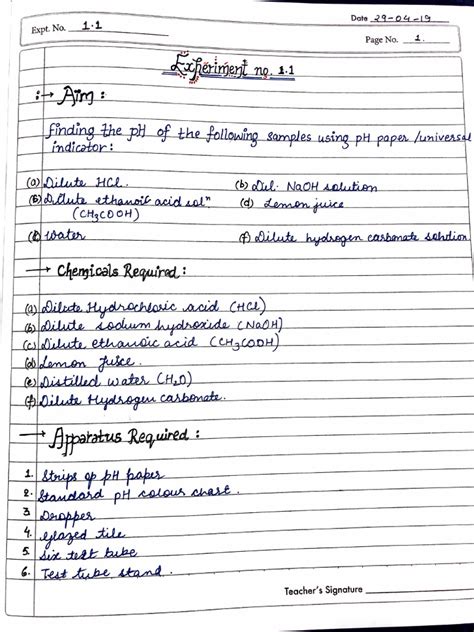 Date 29-04-19
Expt. No. 1.1
Page No. 1.
Experiment no. 1.1
:→ Aim :
finding the pH of the following samples using pH paper /universal
indicator :
(a) Dilute HCl. (b) Dil. NaOH solution
(c) Dilute ethanoic acid solⁿ (d) Lemon juice
(CH₃COOH)
(e) Water (f) Dilute hydrogen carbonate solution
→ Chemicals Required :
(a) Dilute Hydrochloric acid (HCl)
(b) Dilute sodium hydroxide (NaOH)
(c) Dilute ethanoic acid (CH₃COOH)
(d) Lemon Juice.
(e) Distilled water (H₂O)
(f) Dilute Hydrogen carbonate.
→ Apparatus Required :
1. Strips op pH paper
2. Standard pH colour chart.
3 Dropper
4. glazed tile
5. six test tube
6. Test tube stand.
Teacher's Signature